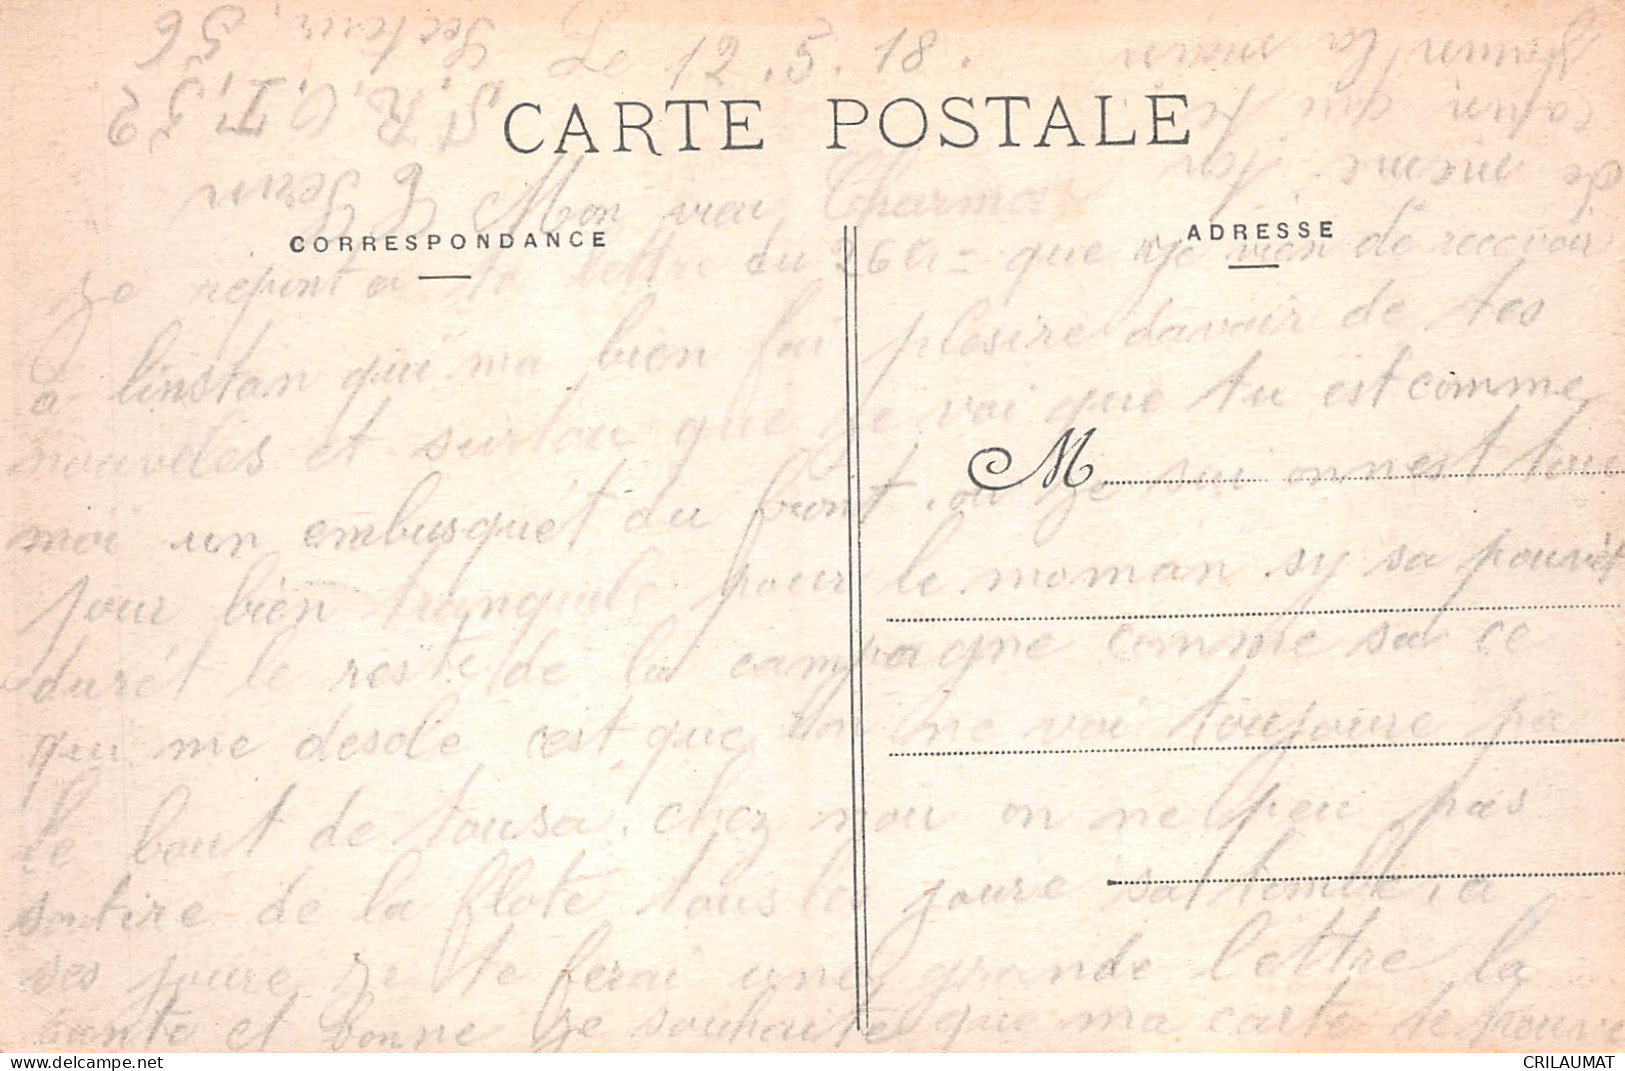 Le 12.5.18.
CARTE POSTALE
Mon vieu
CORRESPONDANCE
ADRESSE
Je repont a ta lettre du 26 que je vien de recevoir
a linstan qui ma bien fai plesire davoir de tes
nouveles et surtou que je voi que tu est comme
M
moi un embusquét du front. ou je sui onnest tou
jour bien tranquile pour le moman sy sa pouvét
durét le reste de la campagne comme sa ce
qui me desole cest que lon ne voi toujoure pa
le bout de tousa. chez nou on ne peu pas
sortire de la flote tous les joure sa tombe, a
ses joure je te ferai une grande lettre la
sante et bonne je souhaite que ma carte te trouve
de meme ton
copin qui te
serre la main
Secteur, 56
S, R, O, T, 52